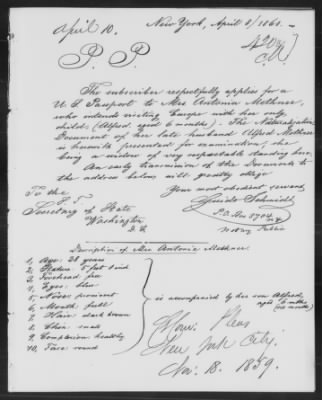 April 10.
New York, April 8/1868.
P. P.
The subscriber respectfully applies for a
U. S. Passport to Mrs Antonia Methner,
who intends visiting Europe with her only
child, (Alfred aged 6 months). The Naturalization
Document of her late husband Alfred Methner
is herewith presented for examination; she
being a widow of very respectable standing here,
An early transmission of the Documents to
the address below will greatly oblige
Your most obedient servant,
Guido Schmidt
P.O. Box 5704 N.Y.
Notary Public
To the
Secretary of State
Washington
D. C.
Description of Mrs Antonia Methner.
1, Age: 28 years
2, Stature 5 feet
3, Forehead free
4, Eyes: blue
5, Nose: prominent
6, Mouth: full
7, Hair dark brown
8, Chin small
9, Complexion healthy
10, Face round
is accompanied by her son Alfred,
aged 6 months
New York City.
Nov. 18. 1859.